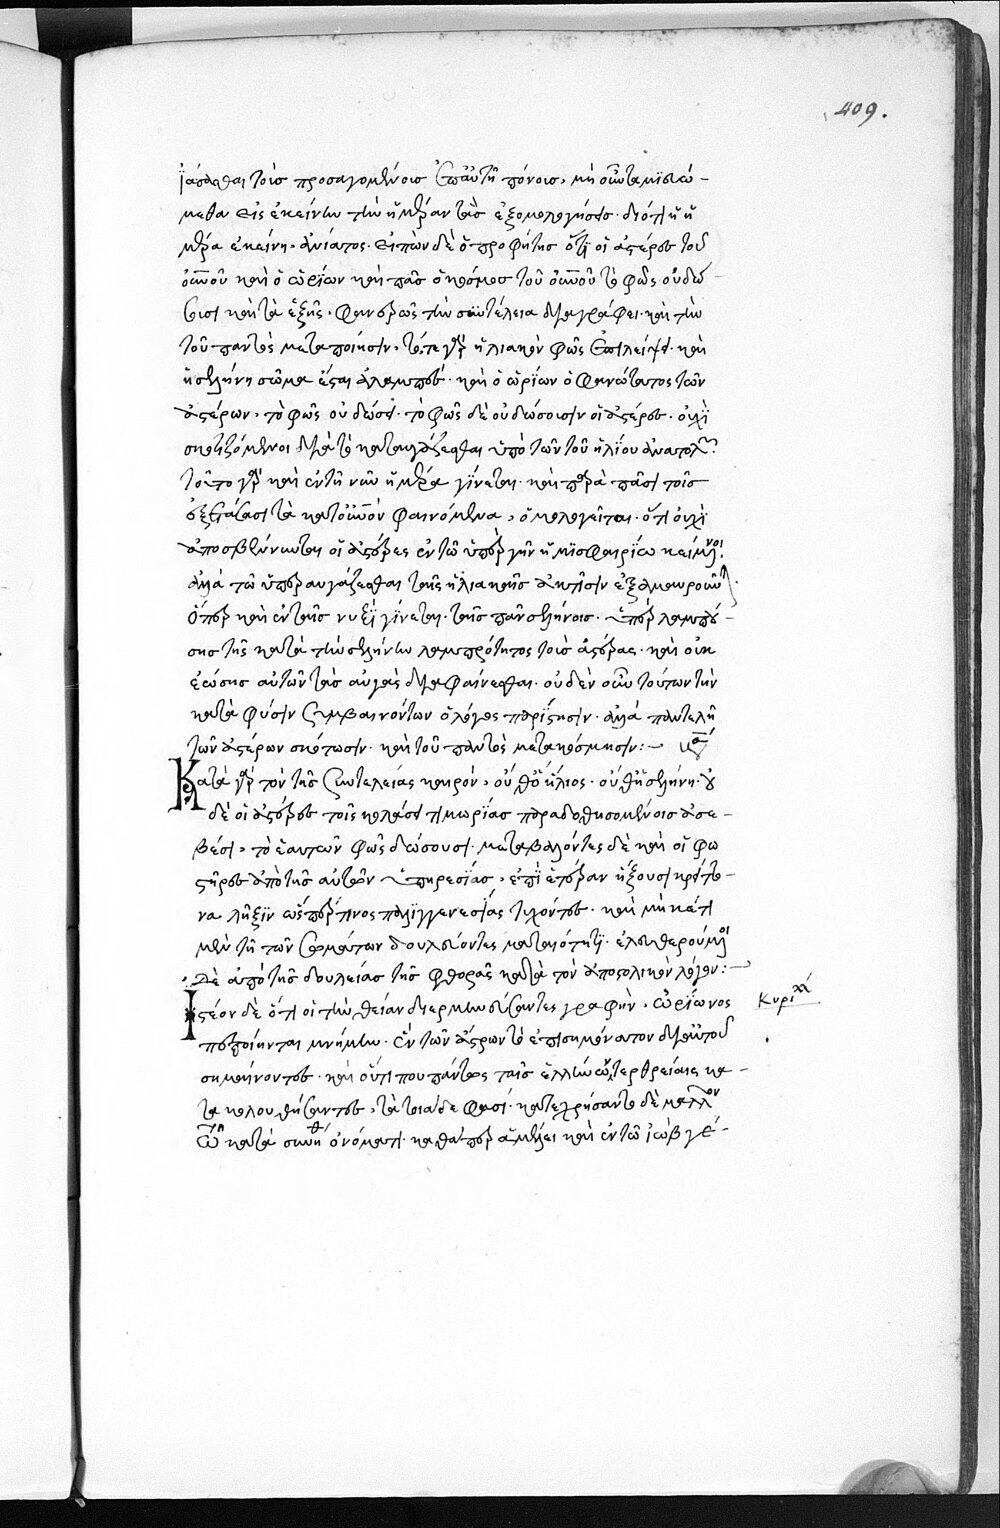 409.
ἰάσασθαι τοῖς προσαγομένοις ἐπ' αὐτῆ πόνοις, μὴ οὖν ταμιευώ-
μεθα εἰς ἐκείνην τὴν ἡμέραν τὰς ἐξομολογήσεις. διότι ἡ ἡ
μέρα ἐκείνη, ἀνίατος. εἰπὼν δὲ ὁ προφήτης ὅτι οἱ ἀστέρες τοῦ
οὐνοῦ καὶ ὁ ὠρίων καὶ πᾶς ὁ κόσμος τοῦ οὐνοῦ τὸ φῶς οὐ δώ-
σουσι καὶ τὰ ἑξῆς, φανερῶς τὴν συντέλειαν διαγράφει. καὶ τὴν
τοῦ παντὸς μεταποίησιν, τότε γὰρ ἡλιακὸν φῶς ἐπιλείψει. καὶ
ἡ σελήνη σῶμα ἔσται ἀλαμπές. καὶ ὁ ὠρίων ὁ φανώτατος τῶν
ἀστέρων, τὸ φῶς οὐ δώσει. τὸ φῶς δὲ οὐ δώσουσιν οἱ ἀστέρες. οὐχὶ
σκοτιζόμενοι διὰ τὸ καταυγάζεσθαι ὑπὸ τῶν τοῦ ἡλίου ἀνατολῶν.
τοῦτο γὰρ καὶ ἐν τῆ νῦν ἡμέρα γίνεται. καὶ παρὰ πᾶσι τοῖς
ἐξετάσασι τὰ κατ' οὐνὸν φαινόμενα, ὁμολογεῖται. ὅτι οὐχὶ
ἀποσβέννυνται οἱ ἀστέρες ἐν τῶ ὑπὲρ γῆν ἡμισφαιρίω κείμενοι.
ἀλλὰ τῶ ὑπεραυγάζεσθαι ταῖς ἡλιακαῖς ἀκτῖσιν ἐξαμαυροῦνται.
ὅπερ καὶ ἐν ταῖς νυξὶ γίνεται. ταῖς πανσελήνοις. ὑπερλαμπού-
σης τῆς κατὰ τὴν σελήνην λαμπρότητος τοὺς ἀστέρας. καὶ οὐκ
ἐώσης αὐτῶν τὰς αὐγὰς διαφαίνεσθαι. οὐδὲν οὖν τούτων τῶν
κατὰ φύσιν συμβαινόντων ὁ λόγος παρίστησιν. ἀλλὰ παντελῆ
τῶν ἀστέρων σκότωσιν. καὶ τοῦ παντὸς μετακόσμησιν:—
Κατὰ γὰρ τὸν τῆς συντελείας καιρόν, οὔθ' ὁ ἥλιος. οὔθ' ἡ σελήνη. οὐ
δὲ οἱ ἀστέρες τοῖς κολάσει τιμωρίας παραδοθησομένοις ἀσε-
βέσι, τὸ ἑαυτῶν φῶς δώσουσι. μεταβαλόντες δὲ καὶ οἱ φω
στῆρες ἀπὸ τῆς αὐτῶν ὑπηρεσίας, ἐπὶ ἑτέραν ἥξουσι κρείττο-
να λῆξιν ὥσπερ τινος παλιγγενεσίας τυχόντες. καὶ μηκέτι
μὲν τῆ τῶν σωμάτων δουλεύοντες ματαιότητι. ἐλευθερούμενοι
δὲ ἀπὸ τῆς δουλείας τῆς φθορᾶς κατὰ τὸν ἀποστολικὸν λόγον:—
Ἰστέον δὲ ὅτι οἱ τὴν θείαν διερμηνεύσαντες γραφὴν, ὠρίωνος
πεποίηνται μνήμην. ἓν τῶν ἄστρων τὸ ἐπισημότατον διὰ τούτου
σημαίνοντες. καὶ οὔτι που πάντως ταῖς ἑλλήνων τερθρείαις κα-
τακολουθήσαντες, τὰ τοιάδε φασί. κατεχρήσαντο δὲ μᾶλλον
τῶ κατὰ συνήθειαν ὀνόματι. καθάπερ ἀμέλει καὶ ἐν τῶ ἰὼβ γέ-